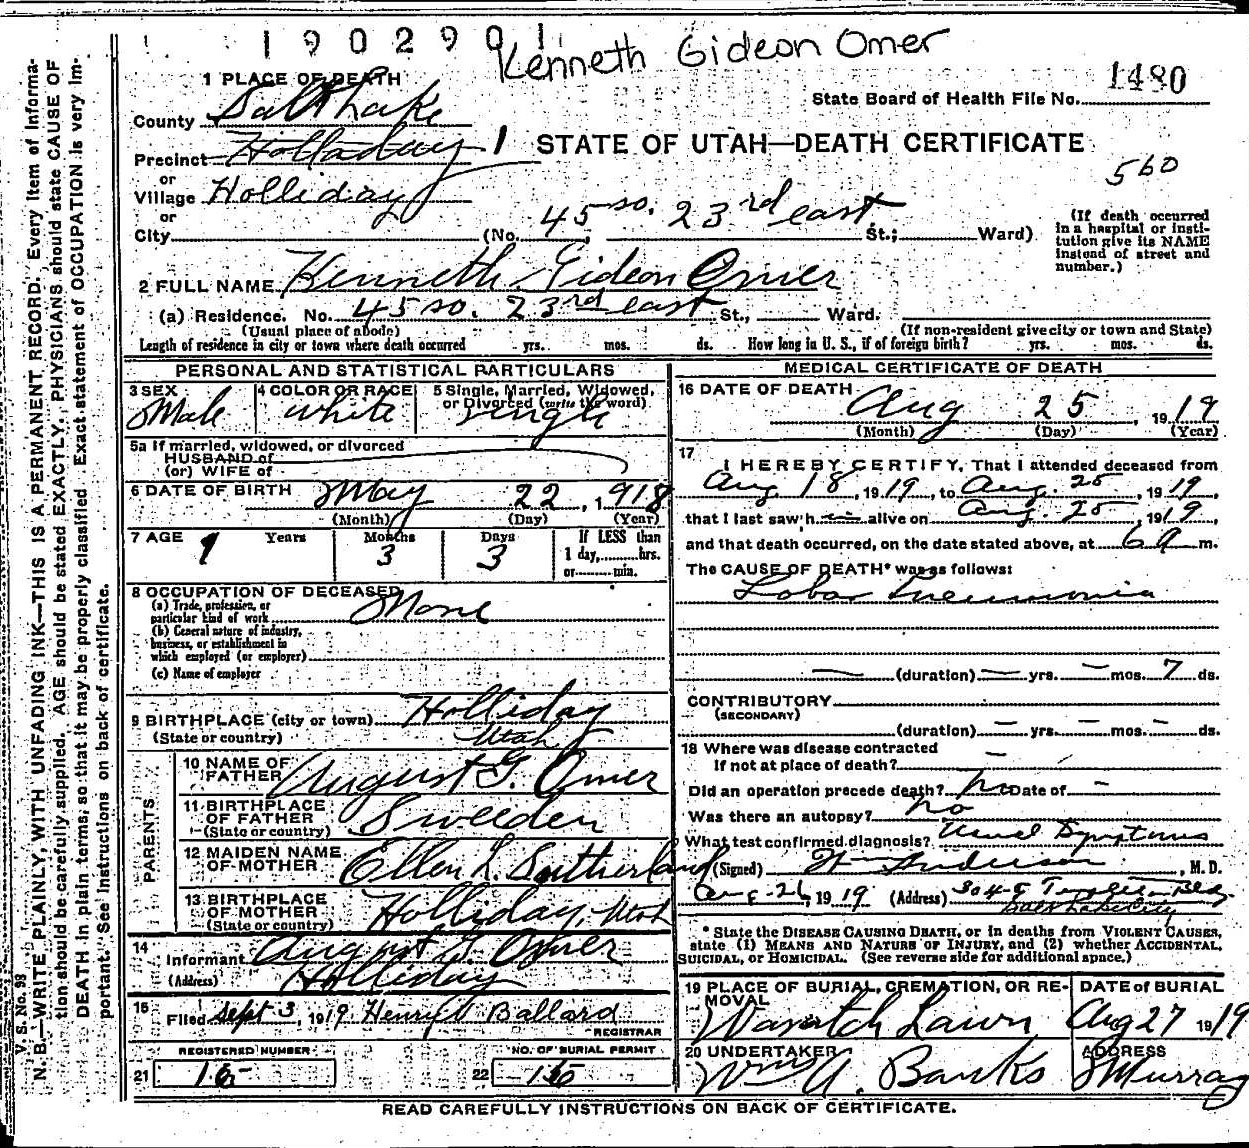 190290 1
Kenneth Gideon Omer
1480
State Board of Health File No.
1 PLACE OF DEATH
County Salt Lake
Precinct Holladay 1
or
Village Holliday
or
City
STATE OF UTAH—DEATH CERTIFICATE
560
(No. 45 so. 23rd east St.; Ward)
(If death occurred
in a hospital or insti-
tution give its NAME
instead of street and
number.)
2 FULL NAME Kenneth Gideon Omer
(a) Residence. No. 45 so. 23rd east St., Ward.
(Usual place of abode) (If non-resident give city or town and State)
Length of residence in city or town where death occurred yrs. mos. ds. How long in U. S., if of foreign birth? yrs. mos. ds.
PERSONAL AND STATISTICAL PARTICULARS
3 SEX Male
4 COLOR OR RACE white
5 Single, Married, Widowed,
or Divorced (write the word) single
5a If married, widowed, or divorced
HUSBAND of
(or) WIFE of
6 DATE OF BIRTH May 22, 1918
(Month) (Day) (Year)
7 AGE 1 Years 3 Months 3 Days
If LESS than
1 day, hrs.
or min.
8 OCCUPATION OF DECEASED
(a) Trade, profession, or
particular kind of work None
(b) General nature of industry,
business, or establishment in
which employed (or employer)
(c) Name of employer
9 BIRTHPLACE (city or town) Holliday
(State or country) Utah
PARENTS
10 NAME OF
FATHER August G. Omer
11 BIRTHPLACE
OF FATHER Sweeden
(State or country)
12 MAIDEN NAME
OF MOTHER Ellen L. Sutherland
13 BIRTHPLACE
OF MOTHER Holliday, Utah
(State or country)
14
Informant August G. Omer
(Address) Holliday
15
Filed Sept 3, 1919 Henry T Ballard
REGISTRAR
REGISTERED NUMBER
21 15
NO. OF BURIAL PERMIT
22 15
MEDICAL CERTIFICATE OF DEATH
16 DATE OF DEATH
Aug 25, 1919
(Month) (Day) (Year)
17
I HEREBY CERTIFY, That I attended deceased from
Aug 18, 1919, to Aug. 25, 1919,
that I last saw him alive on Aug. 25, 1919,
and that death occurred, on the date stated above, at 6 a m.
The CAUSE OF DEATH* was as follows:
Lobar Pneumonia
— (duration) — yrs. — mos. 7 ds.
CONTRIBUTORY
(SECONDARY)
(duration) — yrs. — mos. — ds.
18 Where was disease contracted
If not at place of death? —
Did an operation precede death? no Date of —
Was there an autopsy? no
What test confirmed diagnosis? Usual Symptoms
(Signed) Anderson, M. D.
Aug-26, 1919 (Address) Templeton Bldg
Salt Lake City
* State the DISEASE CAUSING DEATH, or in deaths from VIOLENT CAUSES,
state (1) MEANS AND NATURE OF INJURY, and (2) whether ACCIDENTAL,
SUICIDAL, or HOMICIDAL. (See reverse side for additional space.)
19 PLACE OF BURIAL, CREMATION, OR RE-
MOVAL
Wasatch Lawn
DATE of BURIAL
Aug 27 1919
20 UNDERTAKER
Wm A. Banks
ADDRESS
Murray
READ CAREFULLY INSTRUCTIONS ON BACK OF CERTIFICATE.
V. S. No. 98
N. B.—WRITE PLAINLY, WITH UNFADING INK—THIS IS A PERMANENT RECORD. Every item of informa-
tion should be carefully supplied. AGE should be stated EXACTLY. PHYSICIANS should state CAUSE OF
DEATH in plain terms, so that it may be properly classified. Exact statement of OCCUPATION is very im-
portant. See Instructions on back of certificate.